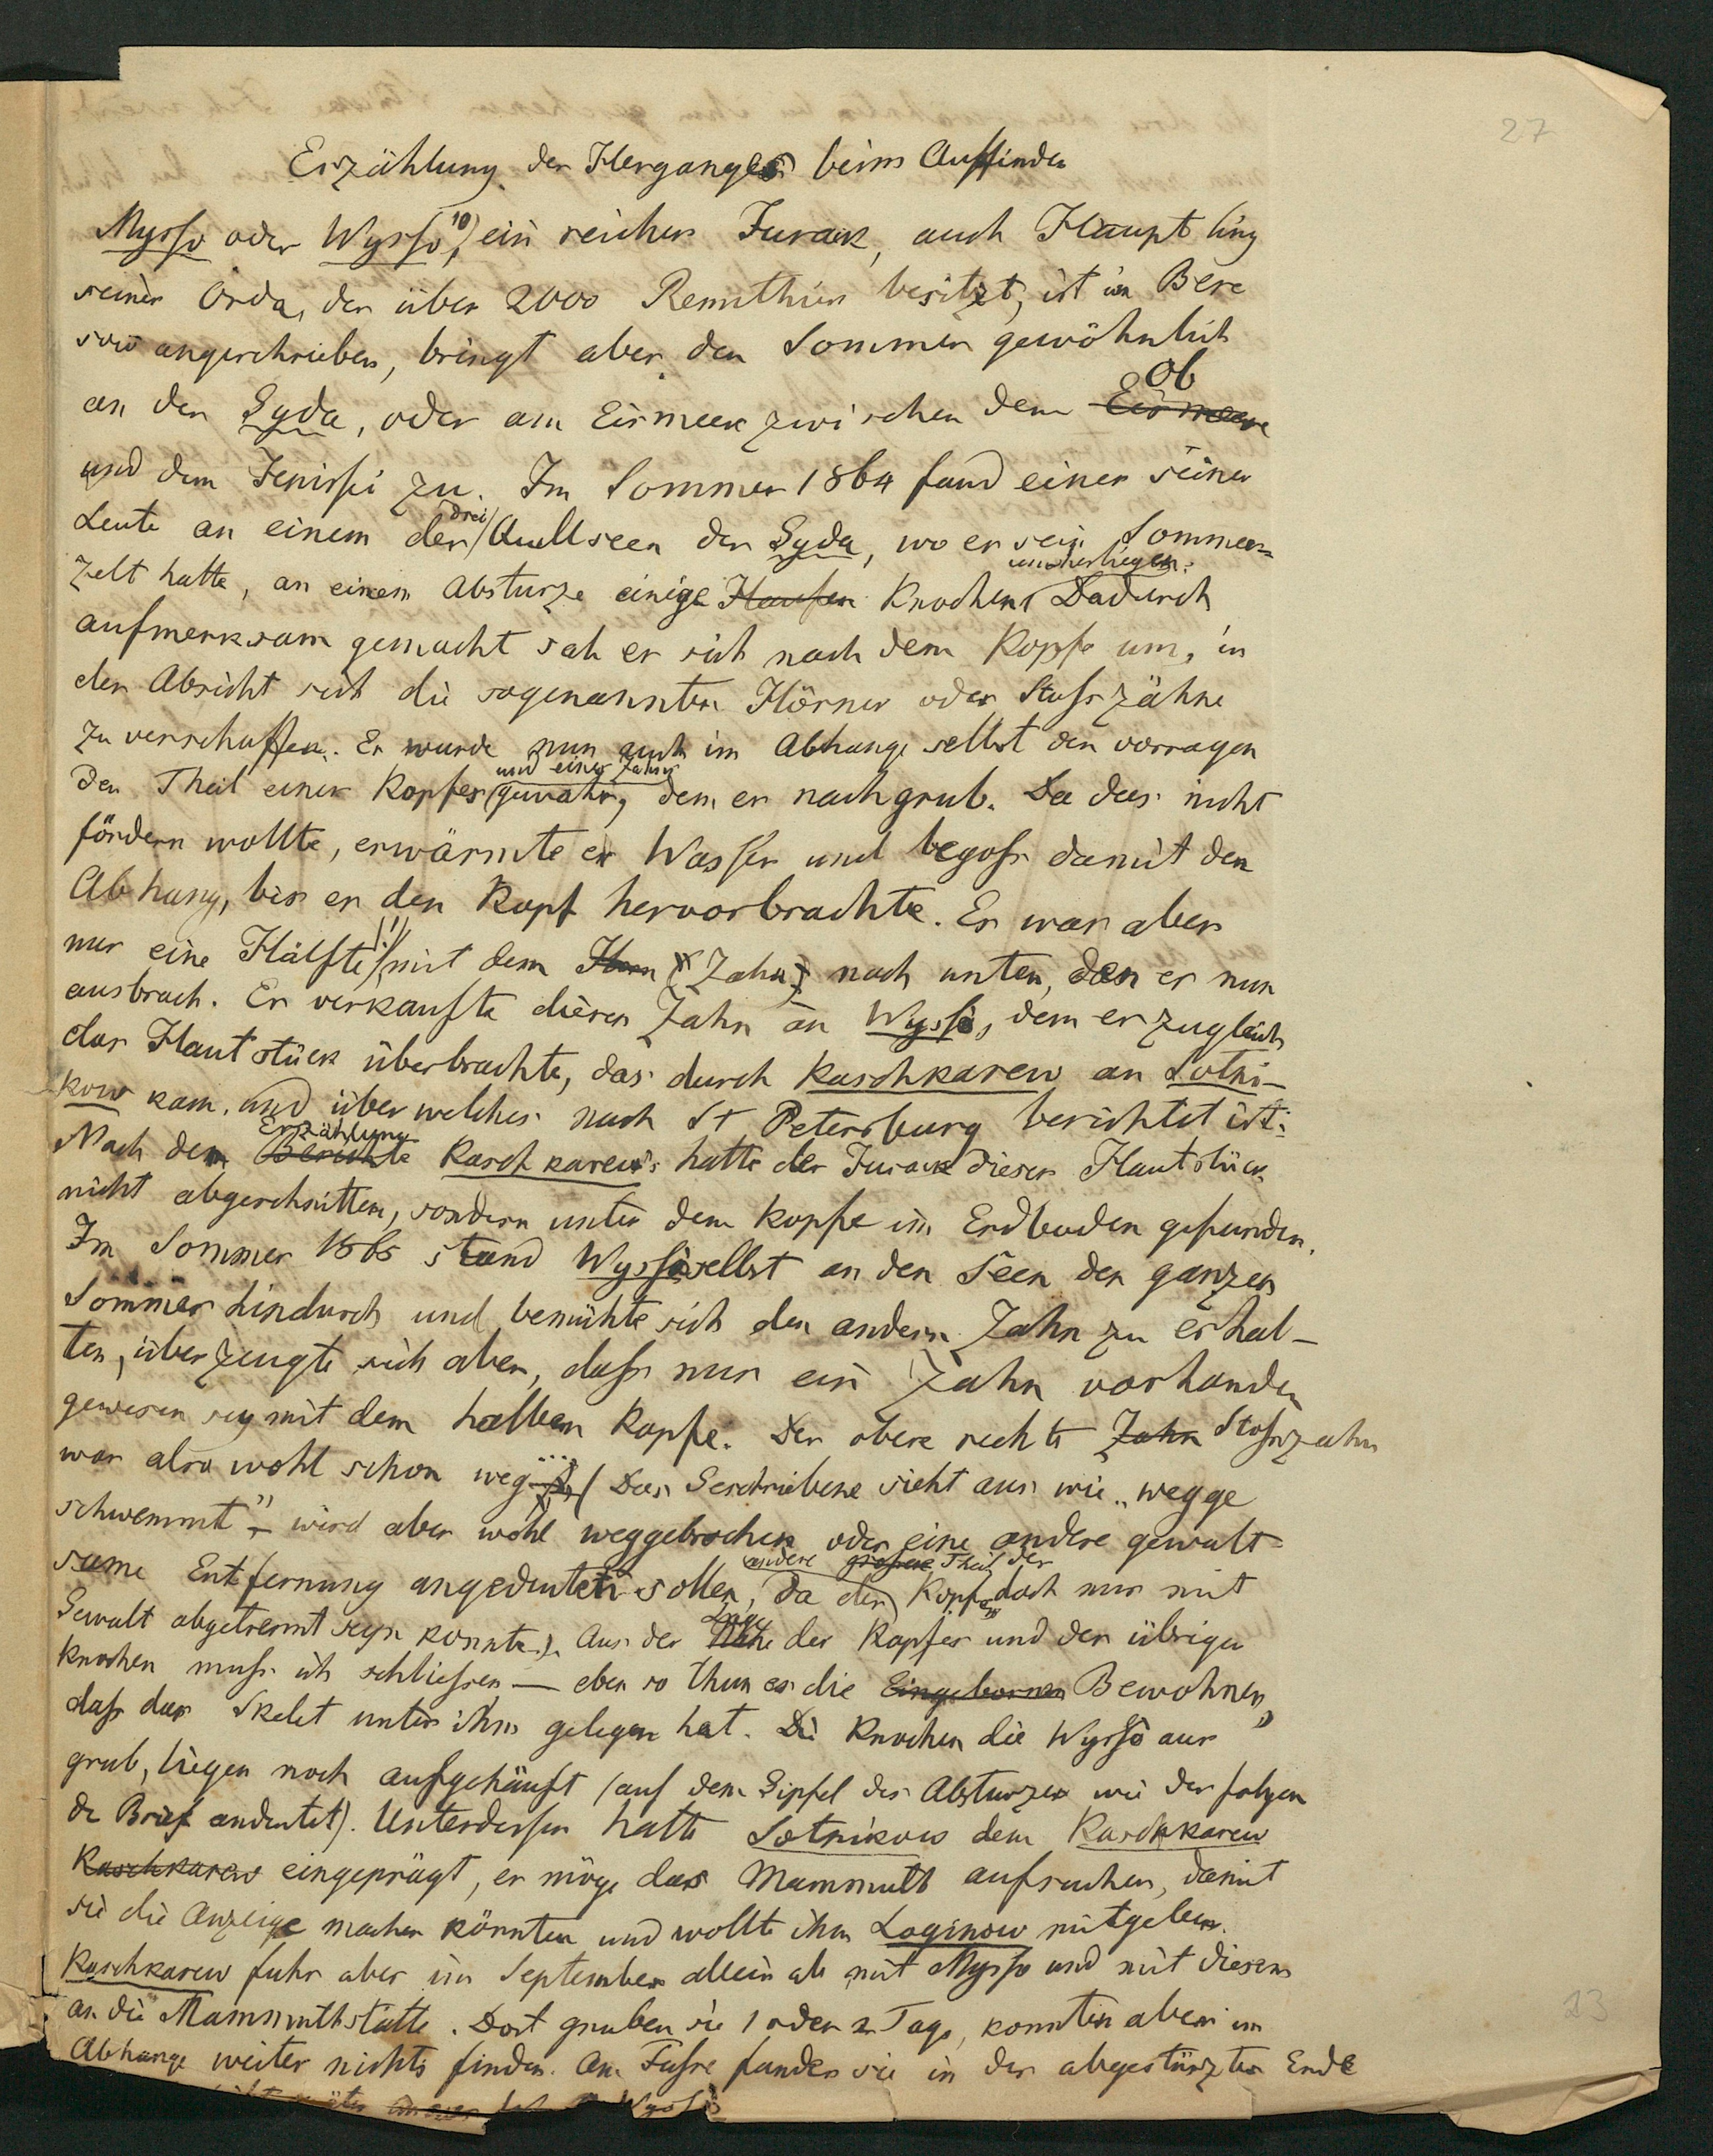 27
Erzählung des Herganges beim Auffinden
Mysso oder Wysso,¹⁰⁾ ein reicher Jurack, auch Häuptling
seiner Orda, der über 2000 Rennthiere besitzt, ist in Bere
sow angeschrieben, bringt aber den Sommer gewöhnlich
an der Gyda, oder am Eismeere zwischen dem Eismeere Ob
und dem Jenissei zu. Im Sommer 1864 fand einer seiner
Leute an einem der drei Quellseen der Gyda, wo er sein Sommer=
zelt hatte, an einem Absturze einige Haufen Knochen umherliegen. Dadurch
aufmerksam gemacht sah er sich nach dem Kopfe um, in
der Absicht sich die sogenannten Hörner oder Stosszähne
zu verschaffen. Er wurde nun auch im Abhange selbst den vorragen
den Theil eines Kopfes und eines Zahns gewahr, dem er nachgrub. Da das nicht
fördern wollte, erwärmte er Wasser und begoss damit den
Abhang, bis er den Kopf hervorbrachte. Es war aber
nur eine Hälfte (!) mit dem Horn (Zahn) nach unten, den er nun
ausbrach. Er verkaufte diesen Zahn an Wysso, dem er zugleich
das Hautstück überbrachte, das durch Kaschkarew an Sotni-
kow kam, und über welches nach St Petersburg berichtet ist.
Nach der Berichte Erzählung Kaschkarew's hatte der Jurack dieses Hautstück
nicht abgeschnitten, sondern unter dem Kopfe im Erdboden gefunden.
Im Sommer 1865 stand Wysso selbst an den Seen den ganzen
Sommer hindurch und bemühte sich den andern Zahn zu erhal-
ten, überzeugte sich aber, dass nur ein Zahn vorhanden
gewesen sey mit dem halben Kopfe. Der obere rechte Zahn Stosszahn
war also wohl schon weg... (Das Geschriebene sieht aus wie „wegge
schwemmt" – wird aber wohl weggebrochen oder eine andere gewalt=
same Entfernung angedeutet sollen, da der andere grosse Theil des Kopfes doch nur mit
Gewalt abgetrennt seyn konnte). Aus der Nähe Lage des Kopfes und der übrigen
Knochen muss ich schliessen — eben so thun es die Eingebornen Bewohner,
dass das Skelet unter ihm gelegen hat. Die Knochen die Wysso aus
grub, liegen noch aufgehäuft (auf dem Gipfel des Absturzes wie der folgen
de Brief andeutet). Unterdessen hatte Sotnikow dem Kaschkarew
Kaschkarew eingeprägt, er möge das Mammuth aufsuchen, damit
sie die Anzeige machen könnten und wollte ihm Loginow mitgeben.
Kaschkarew fuhr aber im September allein ab mit Mysso und mit diesem
an die Mammuthstätte. Dort gruben sie 1 oder 2 Tage, konnten aber im
Abhange weiter nichts finden. Am Fusse fanden sie in der abgestürzten Erde
Wysso
23